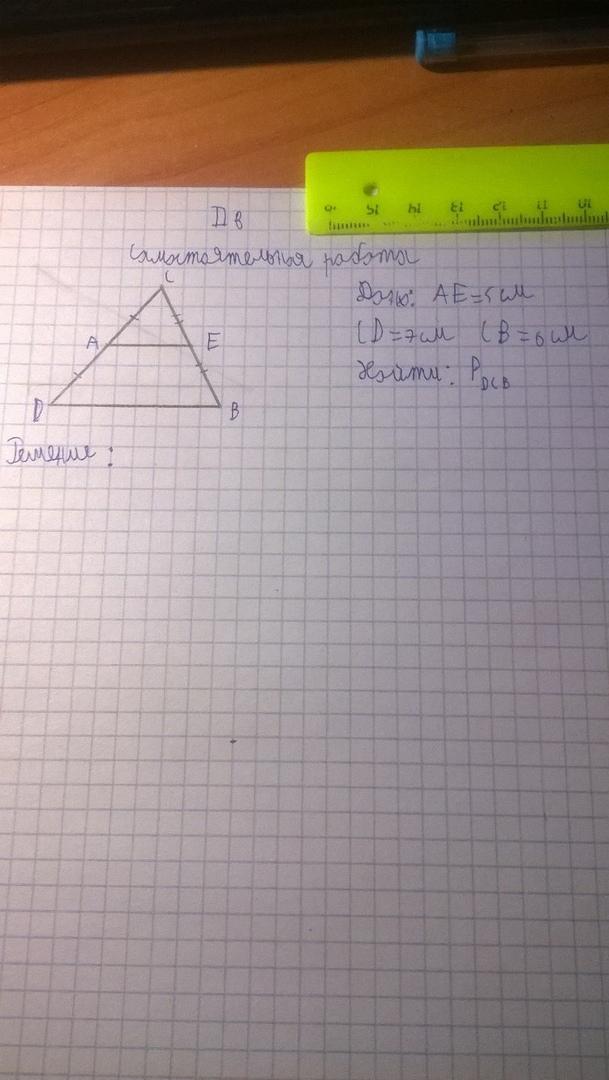 II в
Самостоятельная работа
C
Дано: AE=5 см
A E
CD=7см CB=6см
Найти: P DCB
D B
Решение:
16 15 14 13 12 11 10